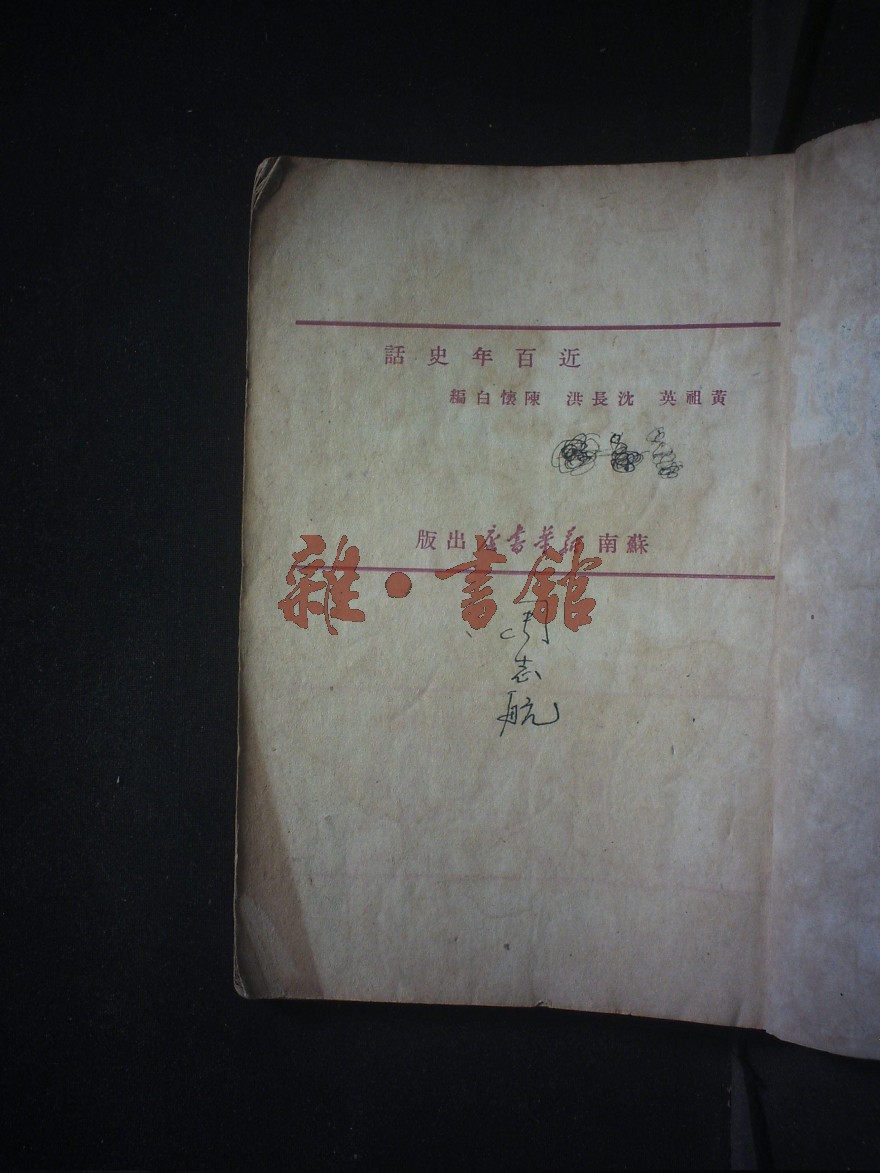 近百年史話
黃祖英 沈長洪 陳懷白編
蘇南新華書店出版
雜·書館
志航